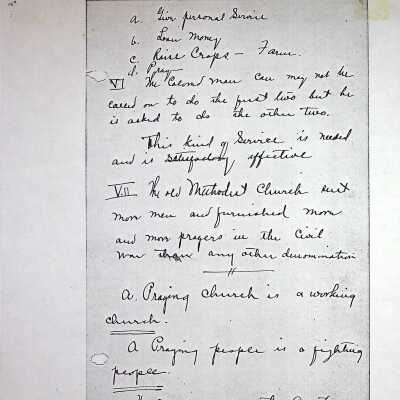 a. Give personal Service
b. Loan Money
c. Raise Crops — Farm.
d. Pray
VI The Colored man can may not be
called on to do the first two but he
is asked to do the other two.
This kind of Service is needed
and is satisfactory effective
VII The old Methodist Church sent
more men and furnished more
and more prayers in the Civil
War than any other denomination
A. Praying church is a working
church.
A Praying people is a fighting
people.